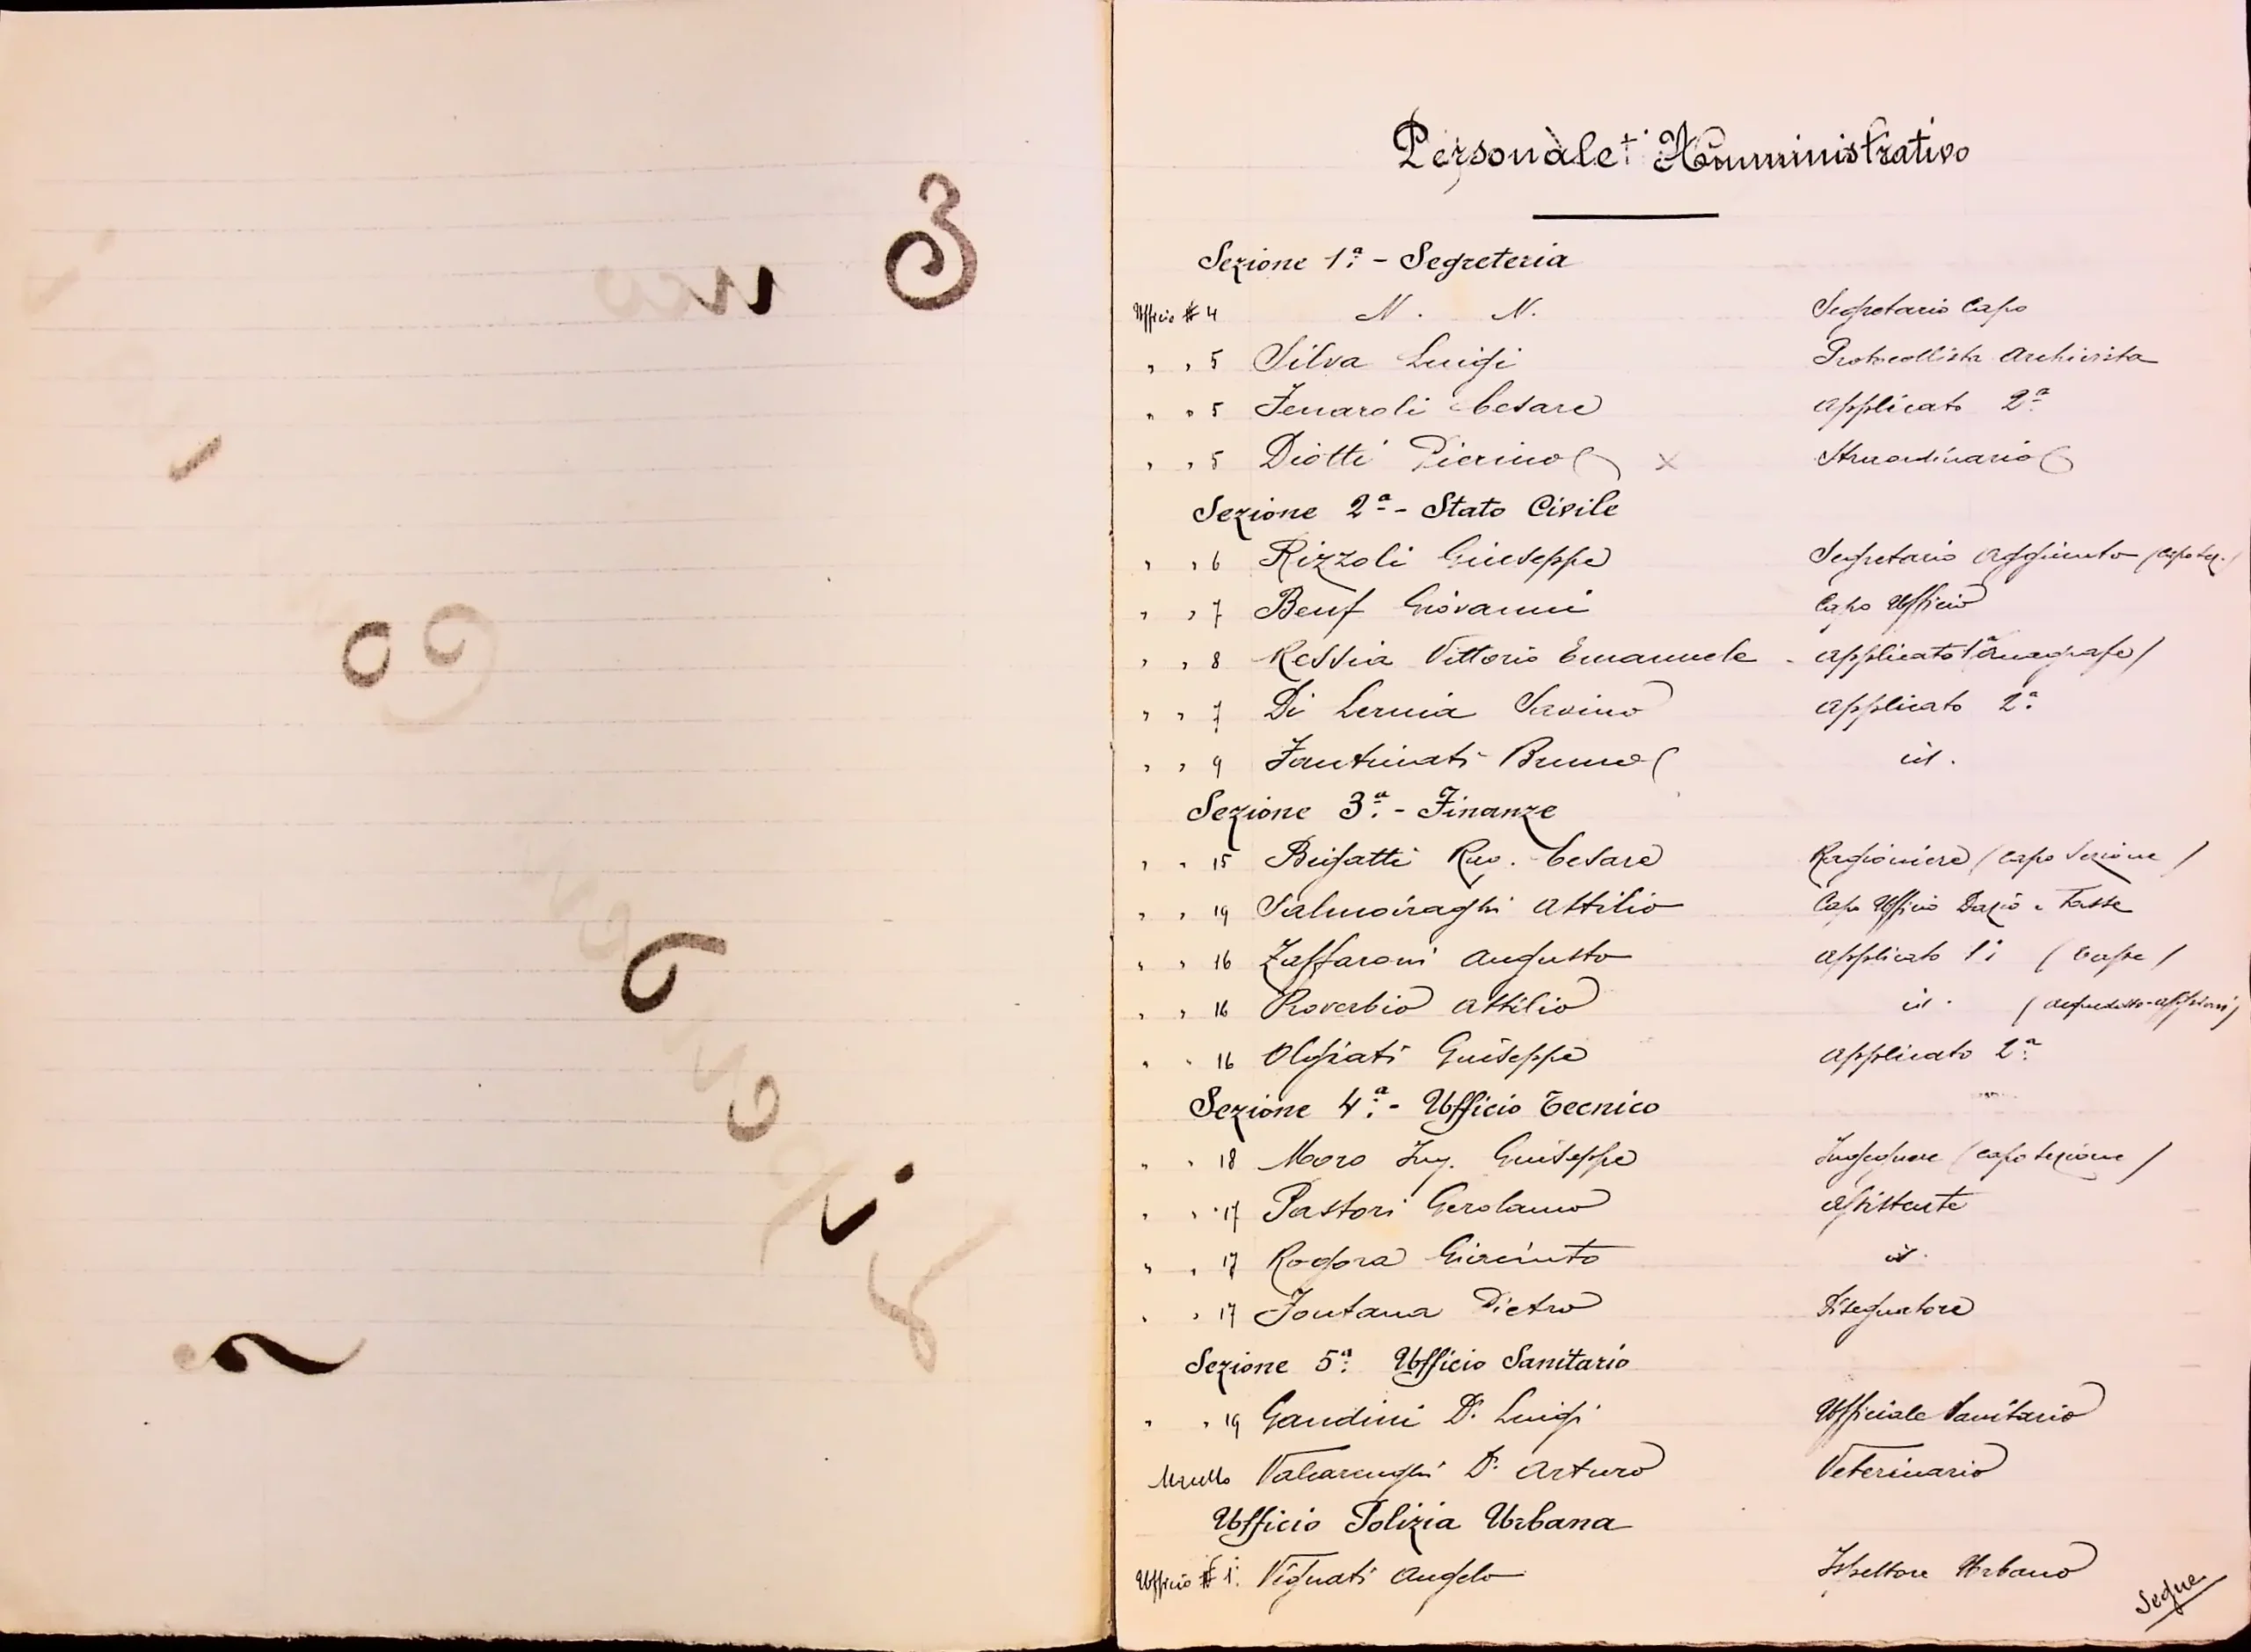 Personale Amministrativo
Sezione 1ª - Segreteria
Ufficio # 4 N. N. Segretario Capo
" " 5 Silva Luigi Protocollista Archivista
" " 5 Fenaroli Cesare Applicato 2ª
" " 5 Diotti Pierino × Straordinario
Sezione 2ª - Stato Civile
" " 6 Rizzoli Giuseppe Segretario Aggiunto (capo sez.)
" " 7 Benf Giovanni Capo Ufficio
" " 8 Ressia Vittorio Emanuele - Applicato 1ª (anagrafe)
" " 7 Di Lernia Savino Applicato 2ª
" " 9 Fantinati Bruno id.
Sezione 3ª - Finanze
" " 15 Brigatti Rag. Cesare Ragioniere (capo sezione)
" " 19 Salmoiraghi Attilio Capo Ufficio Dazio e Tasse
" " 16 Zaffaroni Augusto Applicato 1ª
" " 16 Proverbio Attilio id. (acquedotto-affissioni)
" " 16 Olgiati Giuseppe Applicato 2ª
Sezione 4ª - Ufficio Tecnico
" " 18 Moro Ing. Giuseppe Ingegnere (capo sezione)
" " 17 Pastori Gerolamo Assistente
" " 17 Rogora Giacinto id.
" " 17 Fontana Pietro Disegnatore
Sezione 5ª Ufficio Sanitario
" " 19 Gandini Dr. Luigi Ufficiale Sanitario
Macello Valcarenghi Dr. Arturo Veterinario
Ufficio Polizia Urbana
Ufficio # 1. Vignati Angelo Ispettore Urbano
Segue